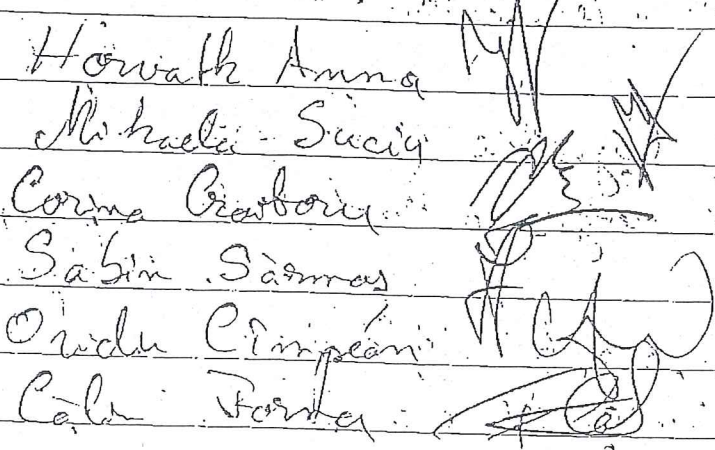 Horvath Anna
Mihaela Suciu
Corina
Sabin Sărmaș
Ovidiu Cîmpean
Călin Forna